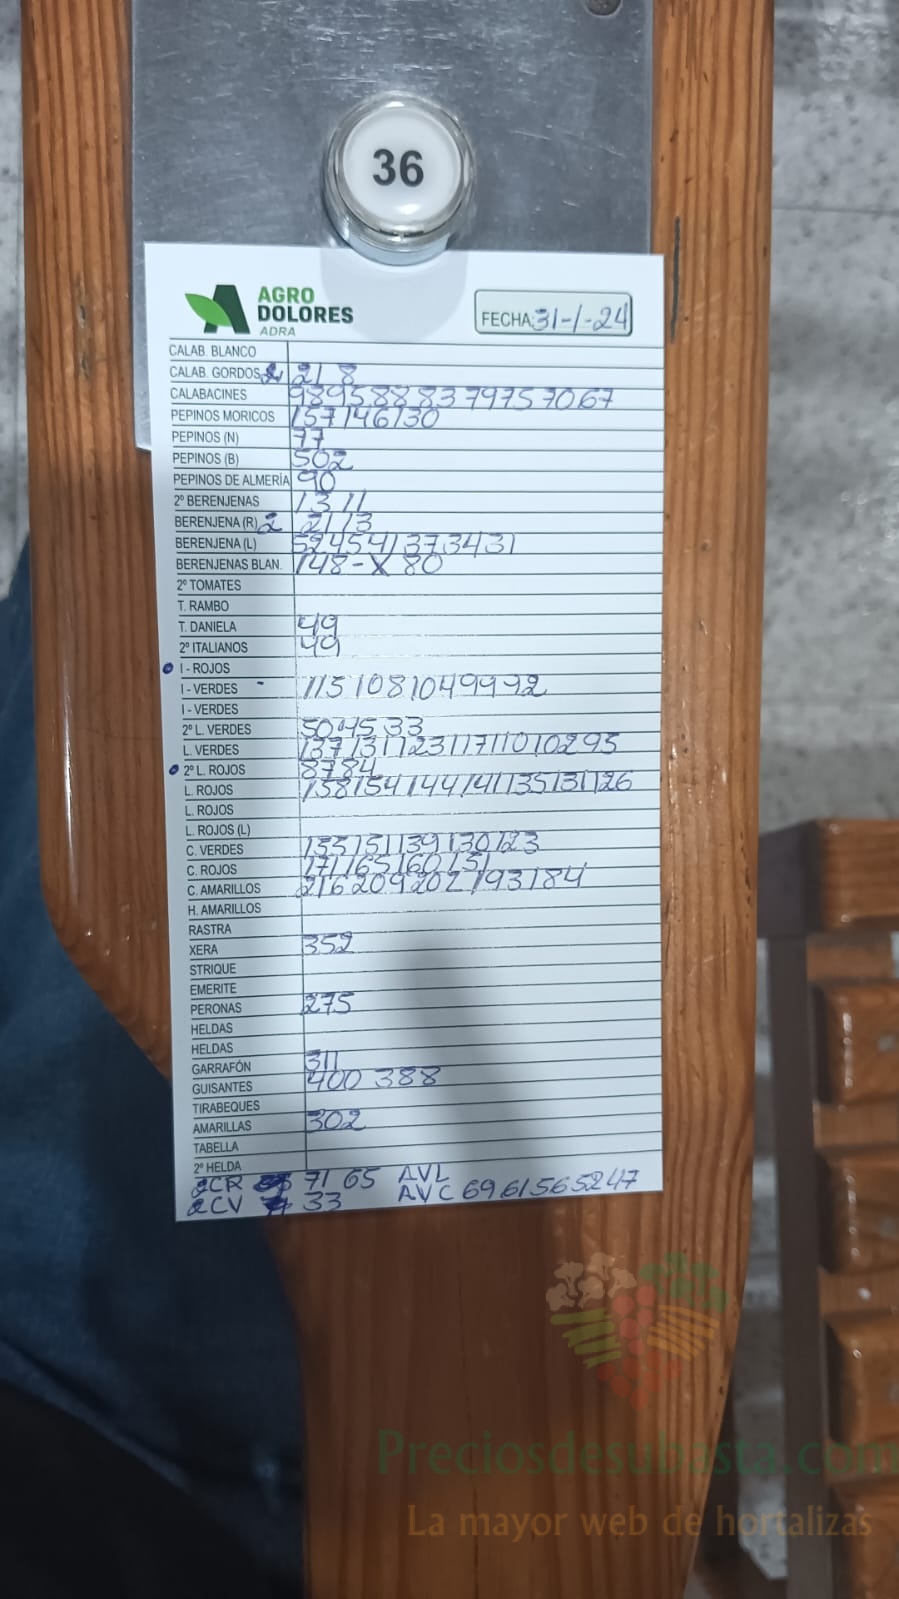 36
AGRO
DOLORES
ADRA
FECHA: 31-1-24
CALAB. BLANCO
CALAB. GORDOS 2 21 8
CALABACINES 98 95 88 83 79 75 70 67
PEPINOS MORICOS 157 146 130
PEPINOS (N) 77
PEPINOS (B) 502
PEPINOS DE ALMERÍA 90
2º BERENJENAS 13 11
BERENJENA (R) 2 21 13
BERENJENA (L) 52 45 41 37 34 31
BERENJENAS BLAN. 148-X 80
2º TOMATES
T. RAMBO
T. DANIELA 49
2º ITALIANOS 49
I - ROJOS
I - VERDES - 115 108 104 99 92
I - VERDES
2º L. VERDES 50 45 33
L. VERDES 137 131 123 117 110 102 95
2º L. ROJOS 87 84
L. ROJOS 158 154 144 141 135 131 126
L. ROJOS
L. ROJOS (L)
C. VERDES 155 151 139 130 123
C. ROJOS 171 165 160 151
C. AMARILLOS 216 209 202 193 184
H. AMARILLOS
RASTRA
XERA 352
STRIQUE
EMERITE
PERONAS 275
HELDAS
HELDAS
GARRAFÓN 311
GUISANTES 400 388
TIRABEQUES
AMARILLAS 302
TABELLA
2º HELDA
2CR 71 65 AVL
2CV 33 AVC 69 61 56 52 47
Preciosdesubasta.com
La mayor web de hortalizas